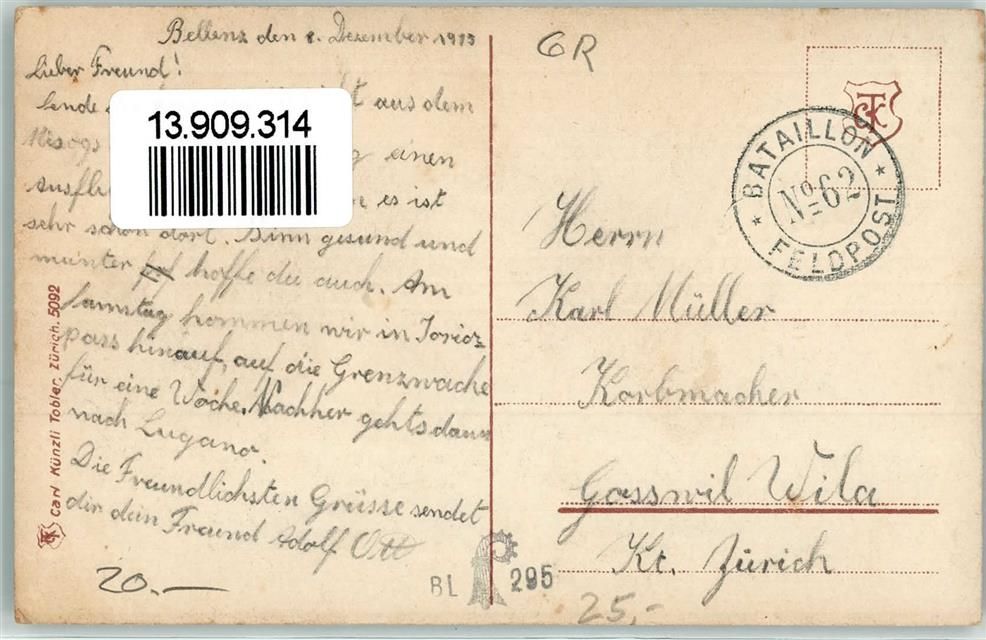 Bellenz den 8. Dezember 1915
Lieber Freund!
sende aus dem
Misogs einen
Ausfl es ist
sehr schön dort. Binn gesund und
munter hoffe du auch. Am
Samstag kommen wir in Jorioz
pass hinauf, auf die Grenzwache
für eine Woche. Nachher gehts dann
nach Lugano.
Die Freundlichsten Grüsse sendet
dir dein Freund Adolf Ott
20.—
13.909.314
Carl Künzli Tobler, Zürich. 5092
GR
CTK
BATAILLON
No 62
FELDPOST
Herrn
Karl Müller
Korbmacher
Gosswil Wila
Kt. Zürich
BL 295
25,-